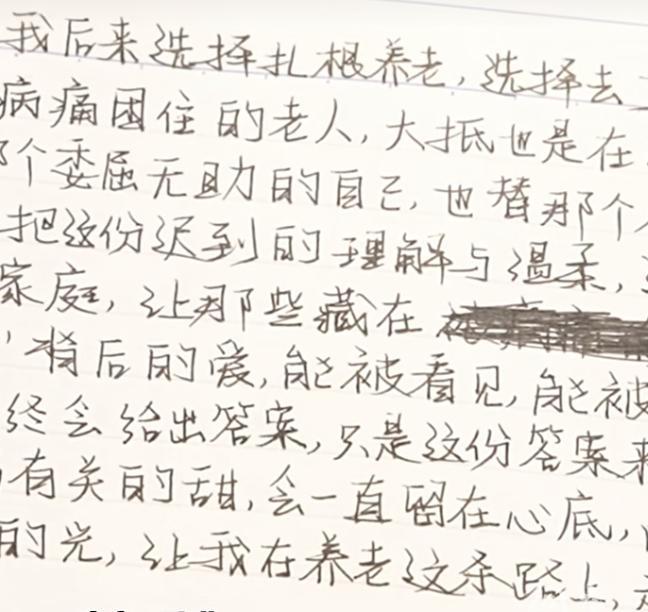 我后来选择扎根养老,选择去
病痛困住的老人,大抵也是在
个委屈无助的自己,也替那个
把这份迟到的理解与温柔,
家庭,让那些藏在
背后的爱,能被看见,能被
终会给出答案,只是这份答案来
有关的甜,会一直留在心底,
的光,让我在养老这条路上,